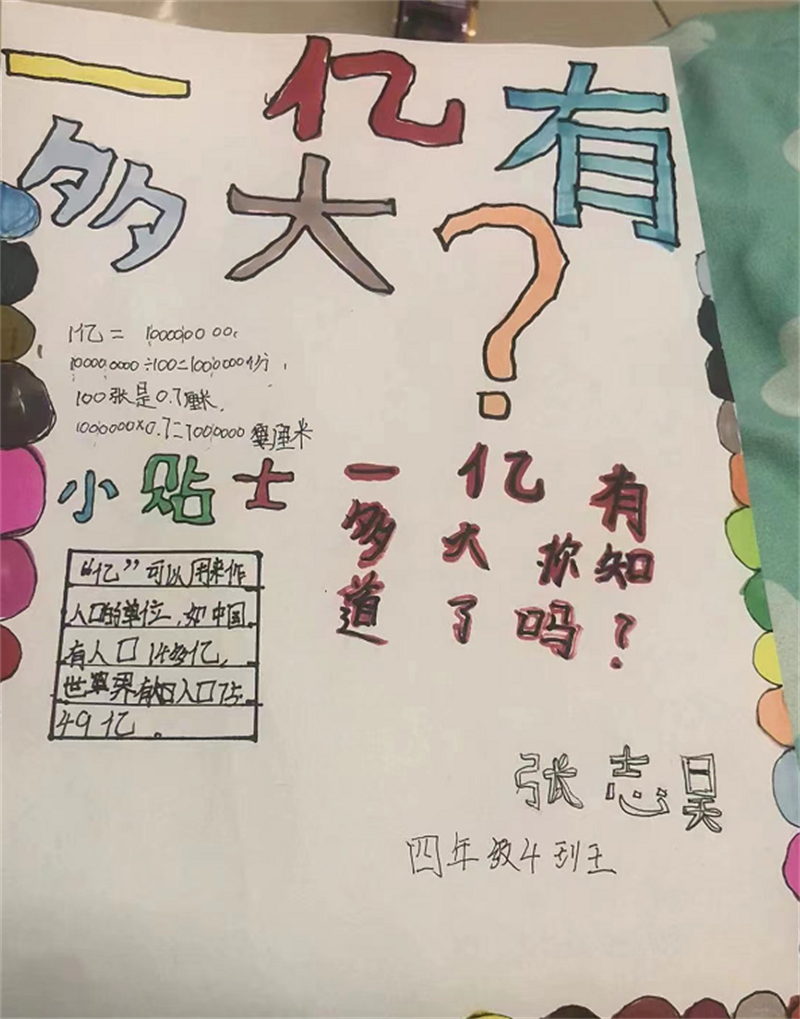 一亿有
多大?
1亿= 100000000
100000000÷100=1000000份
100张是0.7厘米.
1000000×0.7=700000厘米
小贴士
"亿"可以用来作
人口的单位,如中国
有人口 亿,
世界有 人口75.
49亿.
一亿有
多大你知
道了吗?
张志昊
四年级4班